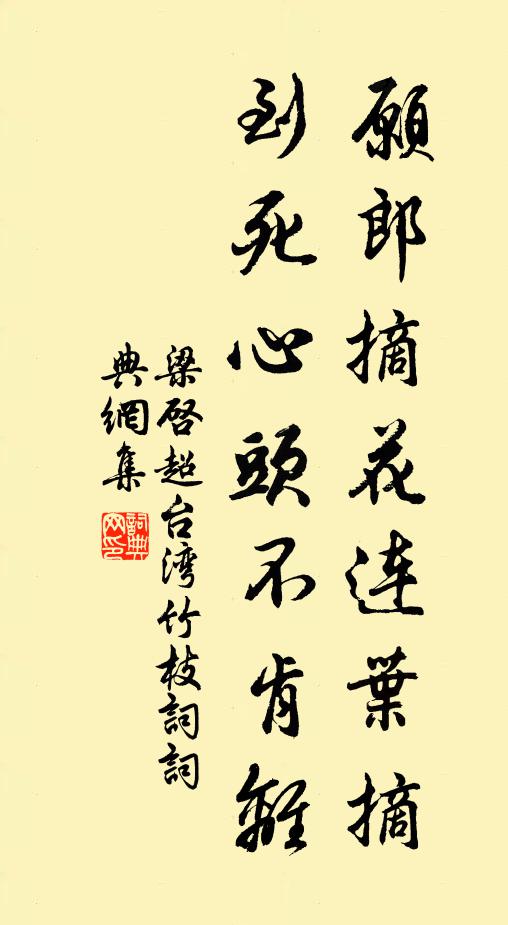 願郎摘花連葉摘
到死心頭不肯離
梁啓超台湾竹枝詞詞
典網集
詞典
网印